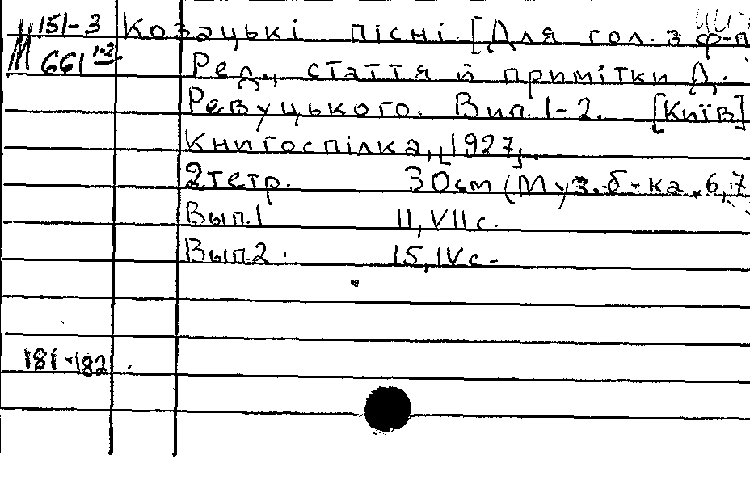 М 151-3 Козацькі пісні. [Для гол. з ф-п
661 1-2 Ред., стаття й примітки Д.
Ревуцького. Вип. 1-2. [Київ]
Книгоспілка, [1927].
2 тетр. 30 см (Муз. б-ка. 6,7
Вып.1 11, VII с.
Вып.2. 15, IV с.
181-182